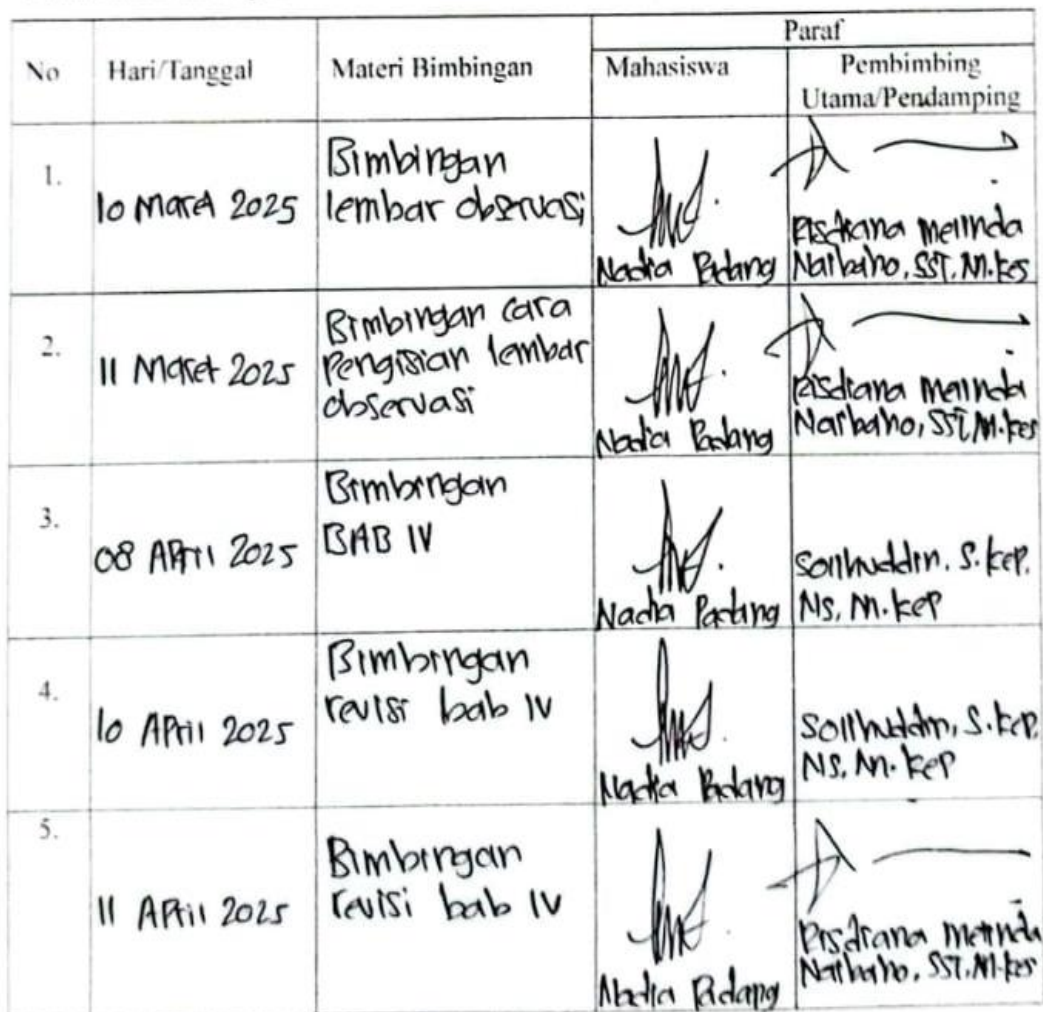 Paraf
No Hari/Tanggal Materi Bimbingan Mahasiswa Pembimbing
Utama/Pendamping
1. 10 Maret 2025 Bimbingan
lembar observasi
Nadia Padang
Risdiana Melinda
Naibaho, SST, M.kes
2. 11 Maret 2025 Bimbingan cara
Pengisian lembar
observasi
Nadia Padang
Risdiana Melinda
Naibaho, SST, M.kes
3. 08 April 2025 Bimbingan
BAB IV
Nadia Padang
Solihuddin, S.kep,
NS, M.kep
4. 10 April 2025 Bimbingan
revisi bab IV
Nadia Padang
Solihuddin, S.kep,
NS, M.kep
5. 11 April 2025 Bimbingan
revisi bab IV
Nadia Padang
Risdiana Melinda
Naibaho, SST, M.kes